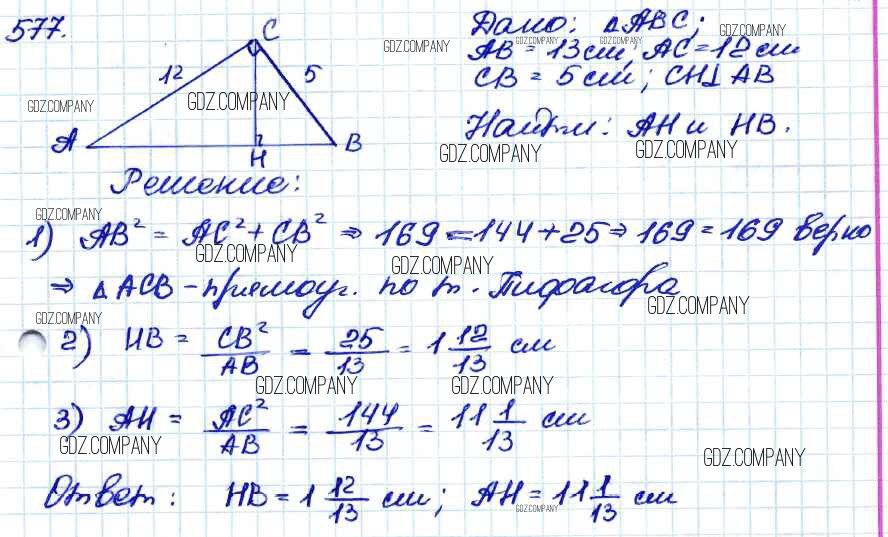 577.
C
12
5
A
H
B
Дано: △ABC;
AB = 13 см, AC = 12 см
CB = 5 см; CH⊥AB
Найти: AH и HB.
Решение:
1) AB² = AC² + CB² ⇒ 169 = 144 + 25 ⇒ 169 = 169 верно
⇒ △ACB - прямоуг. по т. Пифагора
2) HB = CB²/AB = 25/13 = 1 12/13 см
3) AH = AC²/AB = 144/13 = 11 1/13 см
Ответ: HB = 1 12/13 см; AH = 11 1/13 см
GDZ.COMPANY
GDZ.COMPANY
GDZ.COMPANY
GDZ.COMPANY
GDZ.COMPANY
GDZ.COMPANY
GDZ.COMPANY
GDZ.COMPANY
GDZ.COMPANY
GDZ.COMPANY
GDZ.COMPANY
GDZ.COMPANY
GDZ.COMPANY
GDZ.COMPANY
GDZ.COMPANY
GDZ.COMPANY
GDZ.COMPANY
GDZ.COMPANY